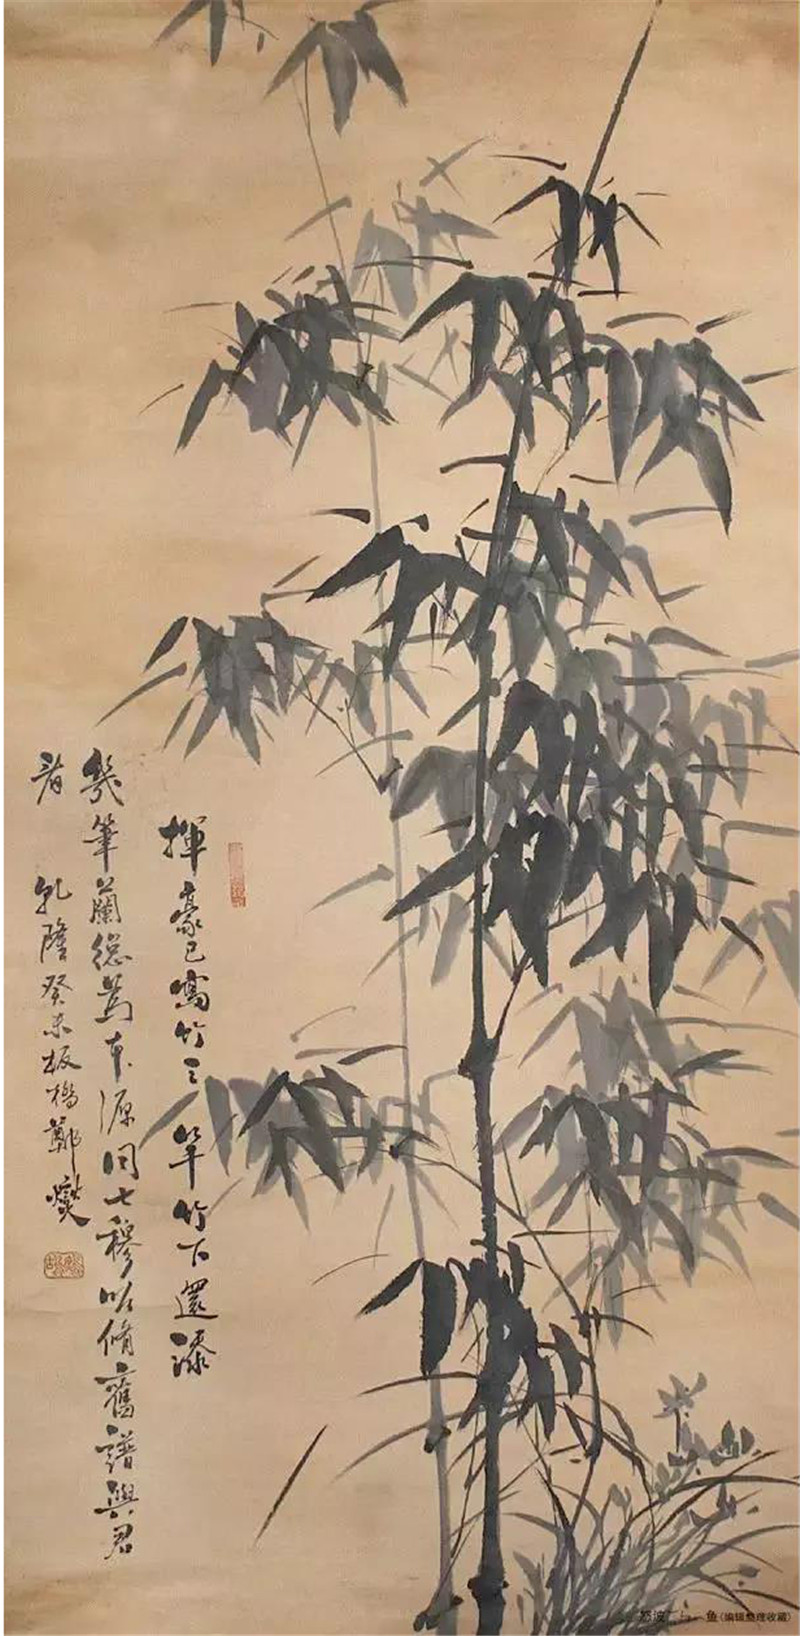 揮豪已寫竹三竿竹下還添
幾筆蘭總為本源同七穆呼脩舊譜與君
看 乾隆癸未板橋鄭燮
鱼(编辑整理收藏)